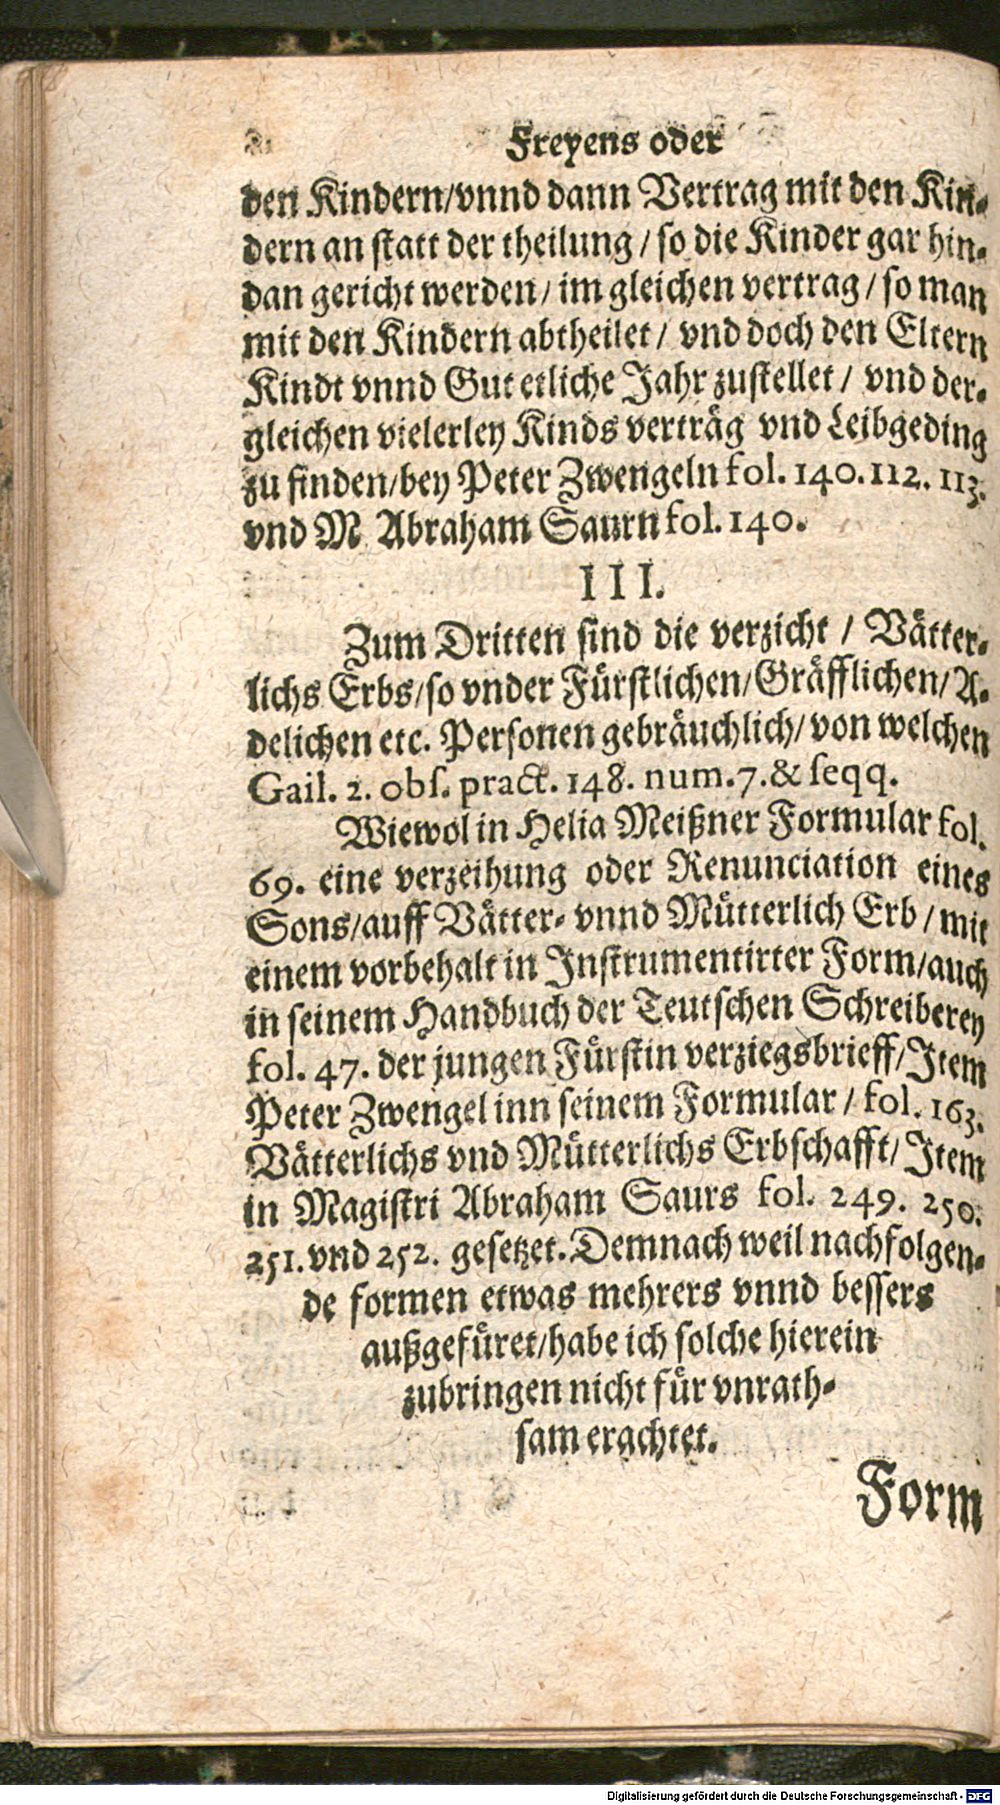 Freyens oder
den Kindern/vnnd dann Vertrag mit den Kin-
dern an statt der theilung / so die Kinder gar hin-
dan gericht werden/ im gleichen vertrag / so man
mit den Kindern abtheilet / vnd doch den Eltern
Kindt vnnd Gut etliche Jahr zustellet / vnd der-
gleichen vielerley Kinds verträg vnd Leibgeding
zu finden/bey Peter Zwengeln fol. 140. 112. 113.
vnd M Abraham Saurn fol. 140.
III.
Zum Dritten sind die verzicht / Vätter-
lichs Erbs/so vnder Fürstlichen/Gräfflichen/A-
delichen etc. Personen gebräuchlich/ von welchen
Gail. 2. obs. pract. 148. num. 7. & seqq.
Wiewol in Helia Meißner Formular fol.
69. eine verzeihung oder Renunciation eines
Sons/auff Vätter- vnnd Mütterlich Erb / mit
einem vorbehalt in Instrumentirter Form/auch
in seinem Handbuch der Teutschen Schreiberey
fol. 47. der jungen Fürstin verziegsbrieff/Item
Peter Zwengel inn seinem Formular / fol. 163.
Vätterlichs vnd Mütterlichs Erbschafft/Item
in Magistri Abraham Saurs fol. 249. 250.
251. vnd 252. gesetzet. Demnach weil nachfolgen-
de formen etwas mehrers vnnd bessers
außgefüret/habe ich solche hierein
zubringen nicht für vnrath-
sam erachtet.
Form
Digitalisierung gefördert durch die Deutsche Forschungsgemeinschaft - DFG